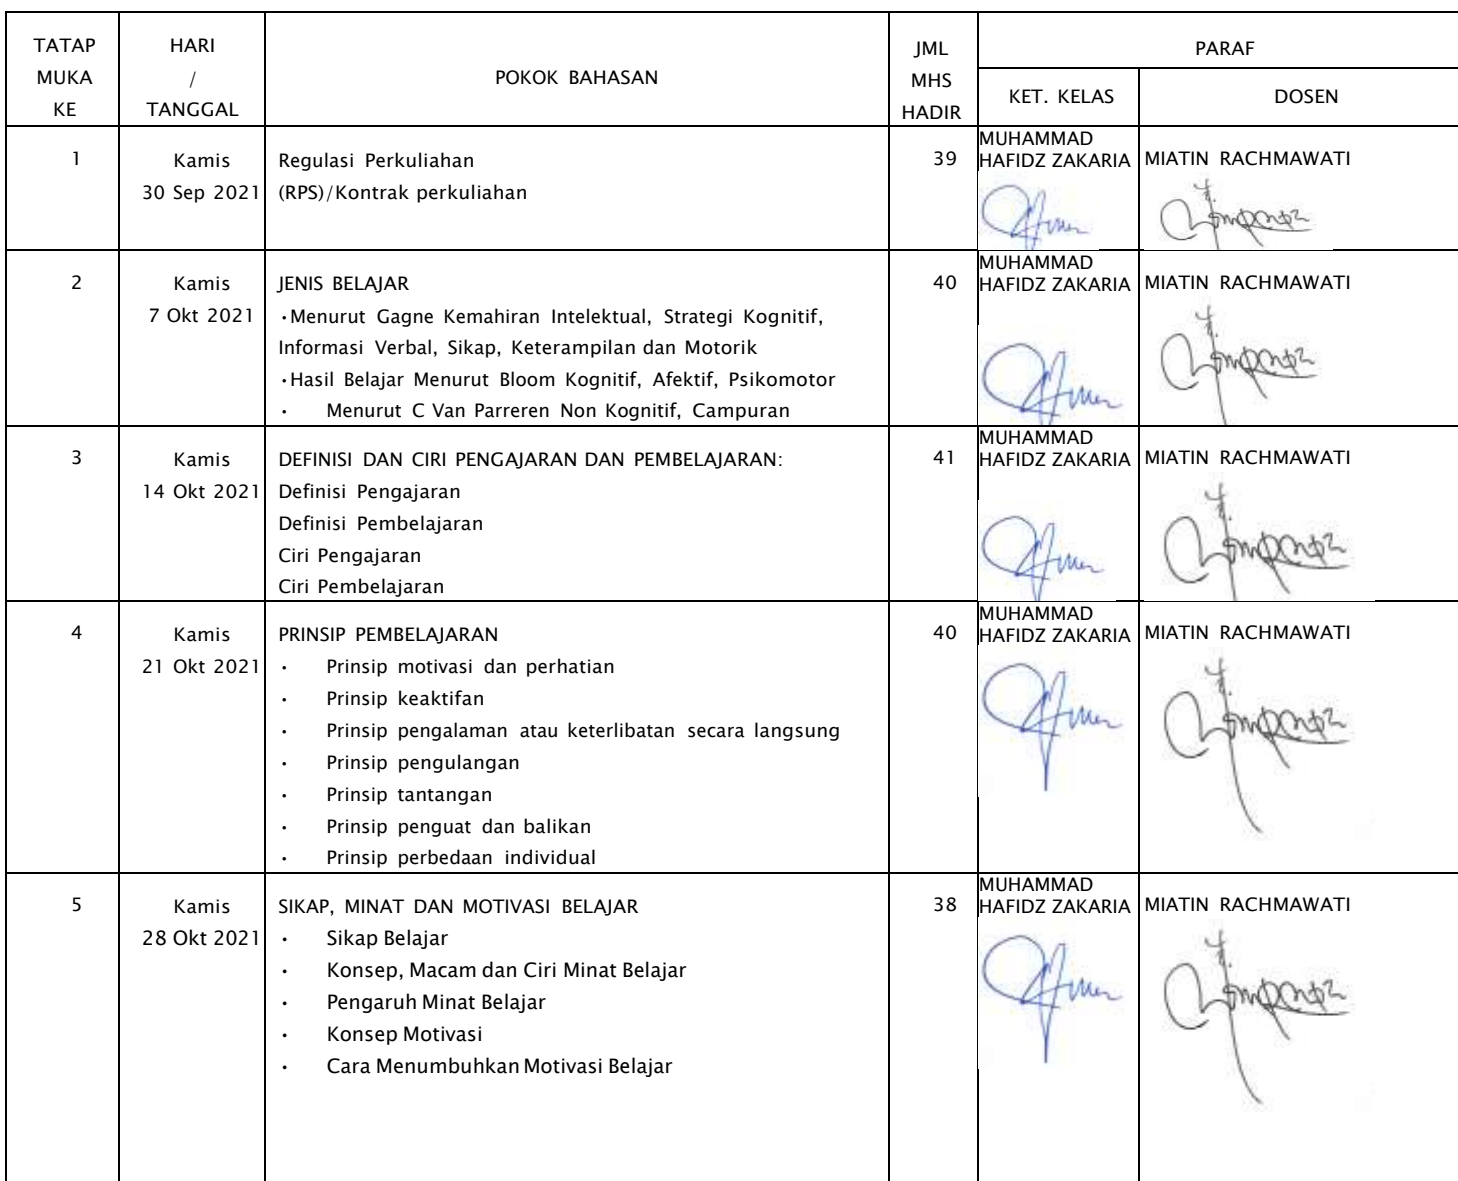 TATAP MUKA KE
HARI / TANGGAL
POKOK BAHASAN
JML MHS HADIR
PARAF
KET. KELAS
DOSEN
1
Kamis
30 Sep 2021
Regulasi Perkuliahan
(RPS)/Kontrak perkuliahan
39
MUHAMMAD
HAFIDZ ZAKARIA
MIATIN RACHMAWATI
2
Kamis
7 Okt 2021
JENIS BELAJAR
•Menurut Gagne Kemahiran Intelektual, Strategi Kognitif,
Informasi Verbal, Sikap, Keterampilan dan Motorik
•Hasil Belajar Menurut Bloom Kognitif, Afektif, Psikomotor
• Menurut C Van Parreren Non Kognitif, Campuran
40
MUHAMMAD
HAFIDZ ZAKARIA
MIATIN RACHMAWATI
3
Kamis
14 Okt 2021
DEFINISI DAN CIRI PENGAJARAN DAN PEMBELAJARAN:
Definisi Pengajaran
Definisi Pembelajaran
Ciri Pengajaran
Ciri Pembelajaran
41
MUHAMMAD
HAFIDZ ZAKARIA
MIATIN RACHMAWATI
4
Kamis
21 Okt 2021
PRINSIP PEMBELAJARAN
• Prinsip motivasi dan perhatian
• Prinsip keaktifan
• Prinsip pengalaman atau keterlibatan secara langsung
• Prinsip pengulangan
• Prinsip tantangan
• Prinsip penguat dan balikan
• Prinsip perbedaan individual
40
MUHAMMAD
HAFIDZ ZAKARIA
MIATIN RACHMAWATI
5
Kamis
28 Okt 2021
SIKAP, MINAT DAN MOTIVASI BELAJAR
• Sikap Belajar
• Konsep, Macam dan Ciri Minat Belajar
• Pengaruh Minat Belajar
• Konsep Motivasi
• Cara Menumbuhkan Motivasi Belajar
38
MUHAMMAD
HAFIDZ ZAKARIA
MIATIN RACHMAWATI